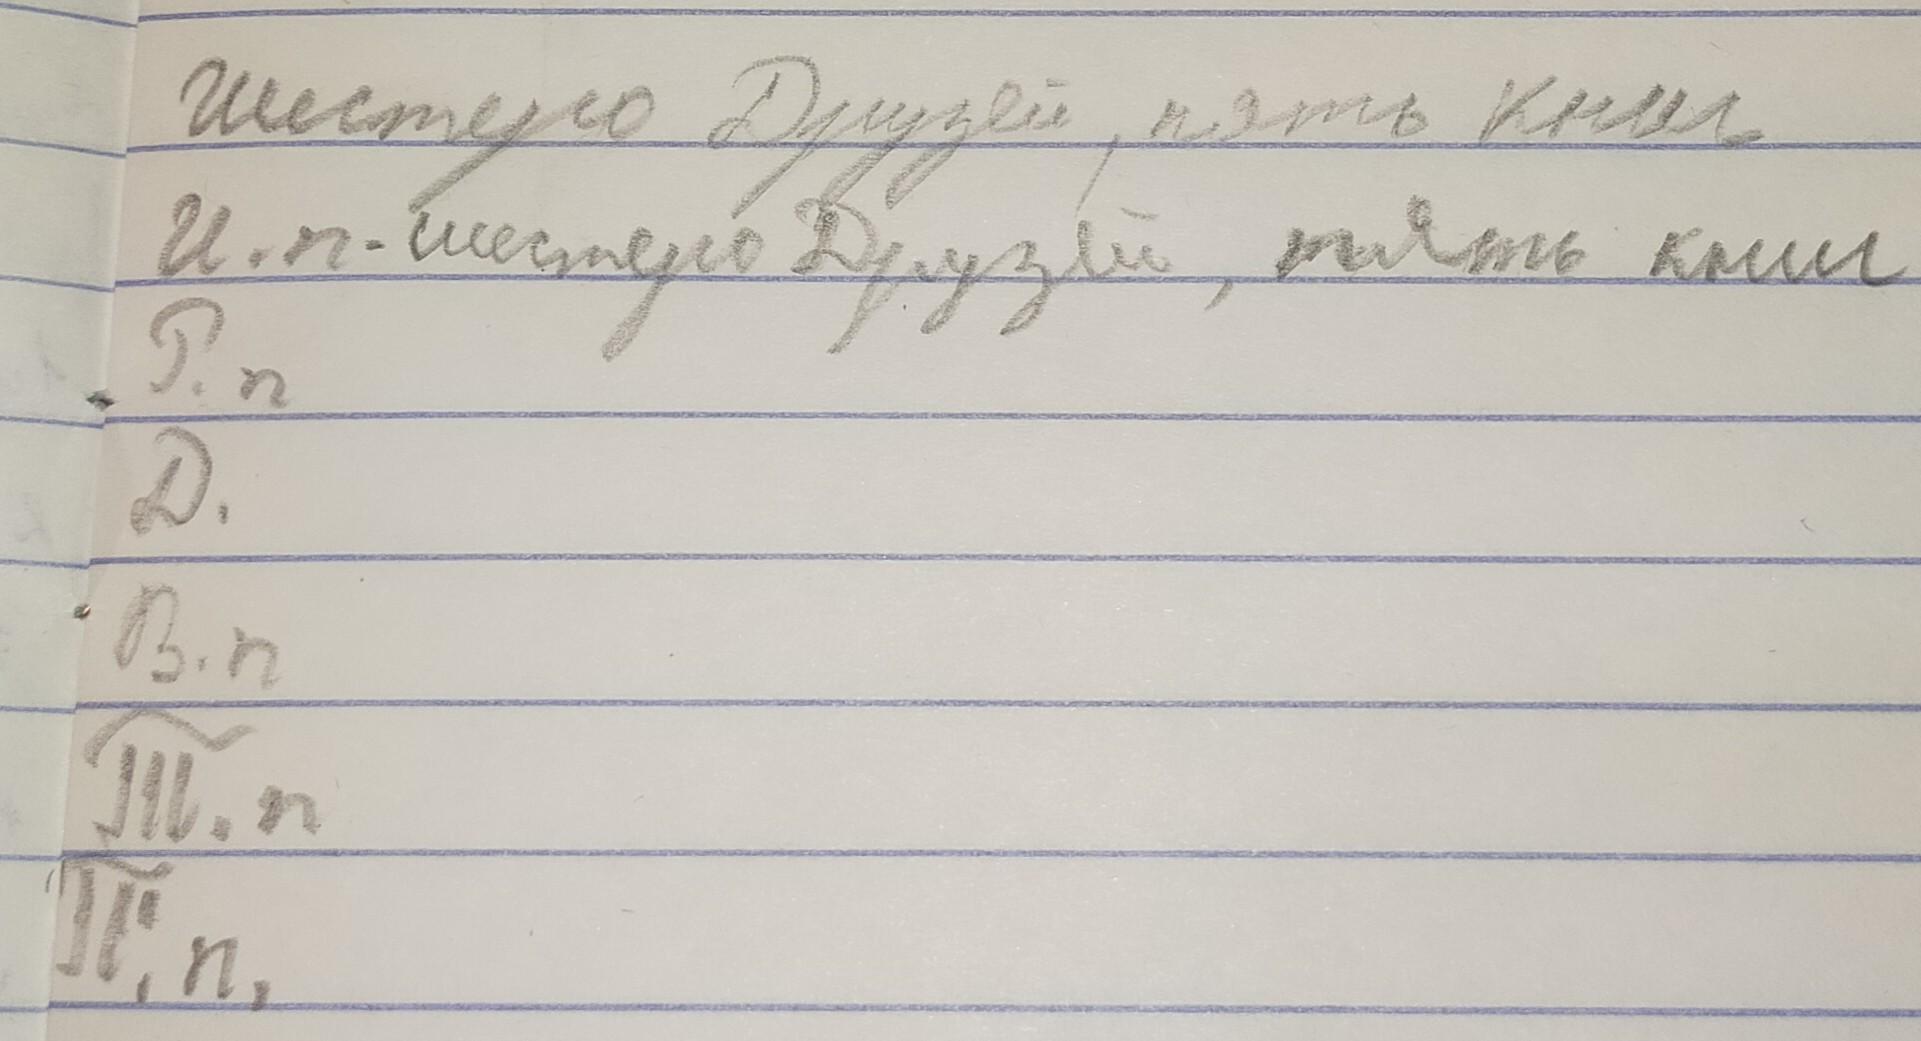 Шестеро Друзей, пять книг
И.п-шестеро Друзей, пять книг
Р.п
Д.
В.п
Т.п
П.п.